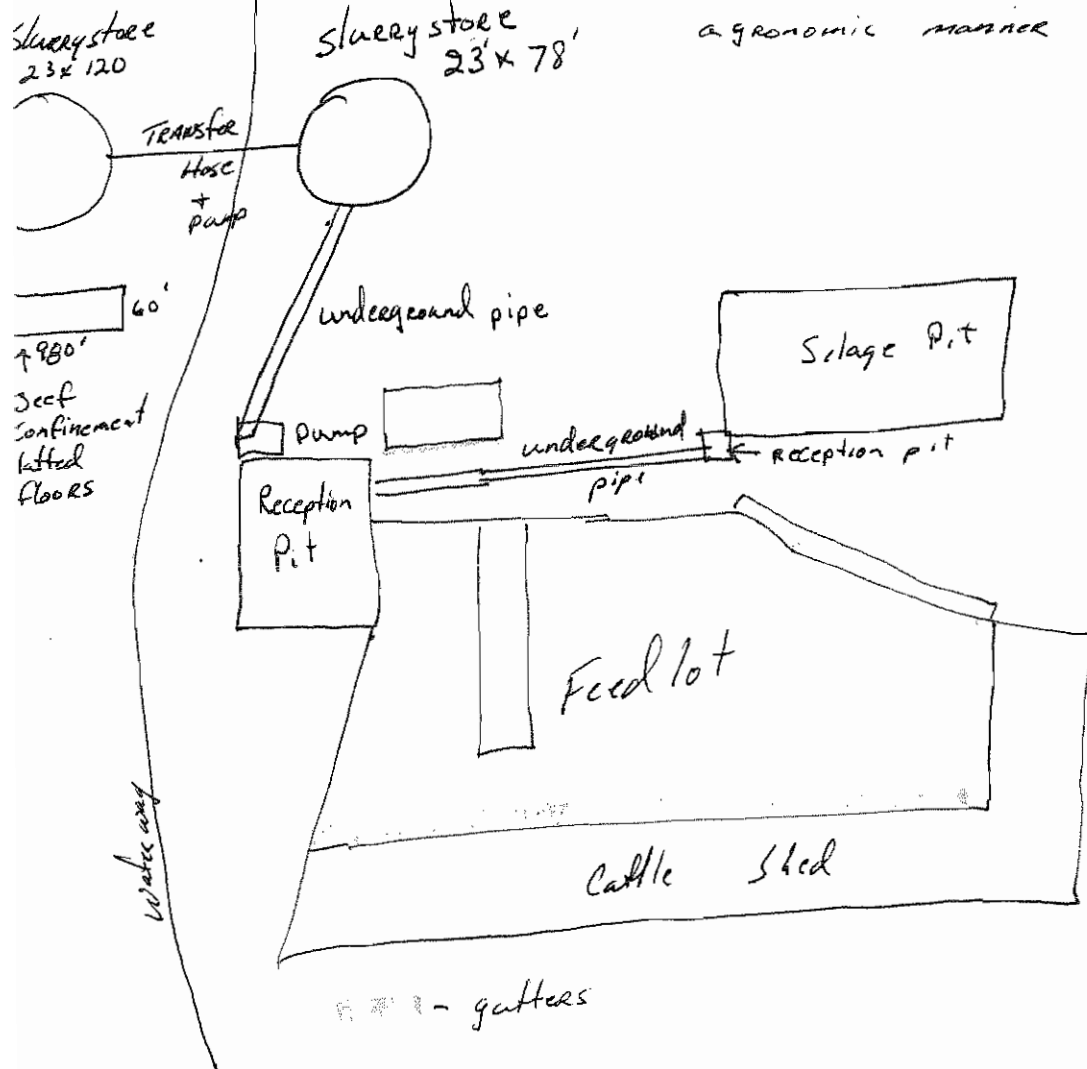 Slurrystore
23 x 120
Slurrystore
23' x 78'
agronomic manner
TRANSfer
Hose
+
pump
60'
980'
Beef
Confinement
latted
floors
underground pipe
Silage Pit
Pump
underground
pipe
← Reception pit
Reception
Pit
Feed lot
Waterway
Cattle Shed
- gutters